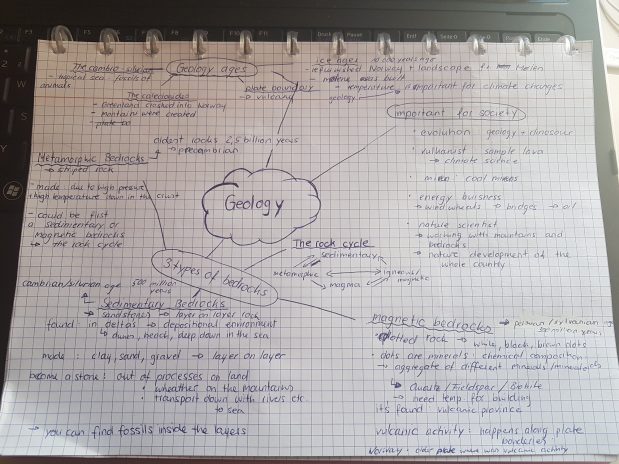 The cambro-silurian
- tropical sea - fossils of
animals
Geology ages
The caledonides
- Greenland crashed into Norway
- mountains were created
plate boundary
→ vulcanic
ice ages 10 000 years ago
- established Norway + landscape
- temperature
→ important for climate changes
geology
oldest rocks 2,5 billion years
→ precambrian
Important for society
• evolution geology + dinosaur
• vulkanist sample lava
→ climate science
• coal
• energy buisness
→ wind wheels → bridges → oil
• nature scientist
→ working with mountains and
bedrocks
→ nature development of the
whole country
Metamorphic Bedrocks
→ striped rock
- made due to high pressure
+ high temperature down in the crust
- could be first
a sedimentary or
magnetic bedrocks
↳ the rock cycle
Geology
3 types of bedrocks
The rock cycle
sedimentary
metamorphic
igneous/
magnetic
magma
cambrian/silurian age 500 million
years
↳ Sedimentary Bedrocks
→ sandstones → layer on layer rock
found: in deltas → depositional environment
↳ beach, deep down in the sea
made: clay, sand, gravel → layer on layer
become a stone: out of processes on land
• wheather on the mountains
• transport down with rivers etc.
↳ sea
→ you can find fossils inside the layers
magnetic bedrocks
rock → white, black, brown dots
• dots are minerals: chemical composition
→ aggregate of different minerals/
↳ Quartz / Fieldspar / Biotite
→ need temp. for building
it's found: vulcanic province
vulcanic activity: happens along plate
Norway: older plate vulcanic activity